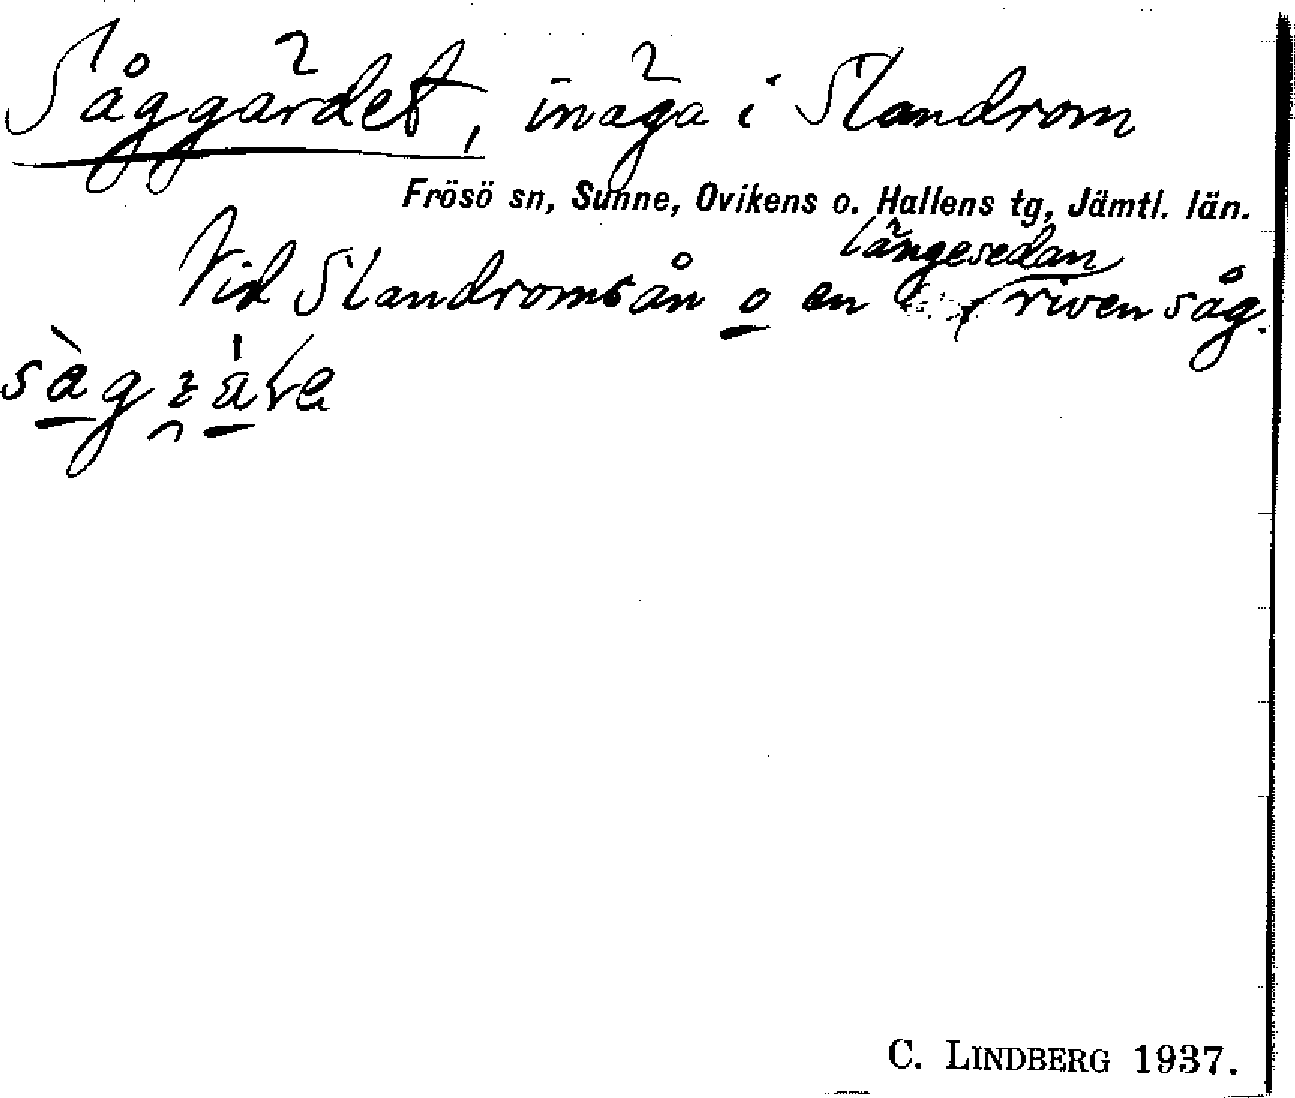 Såggärdet, inäga i Slandrom
Frösö sn, Sunne, Ovikens o. Hallens tg, Jämtl. län.
längesedan
Vid Slandromsån o en riven såg.
C. LINDBERG 1937.